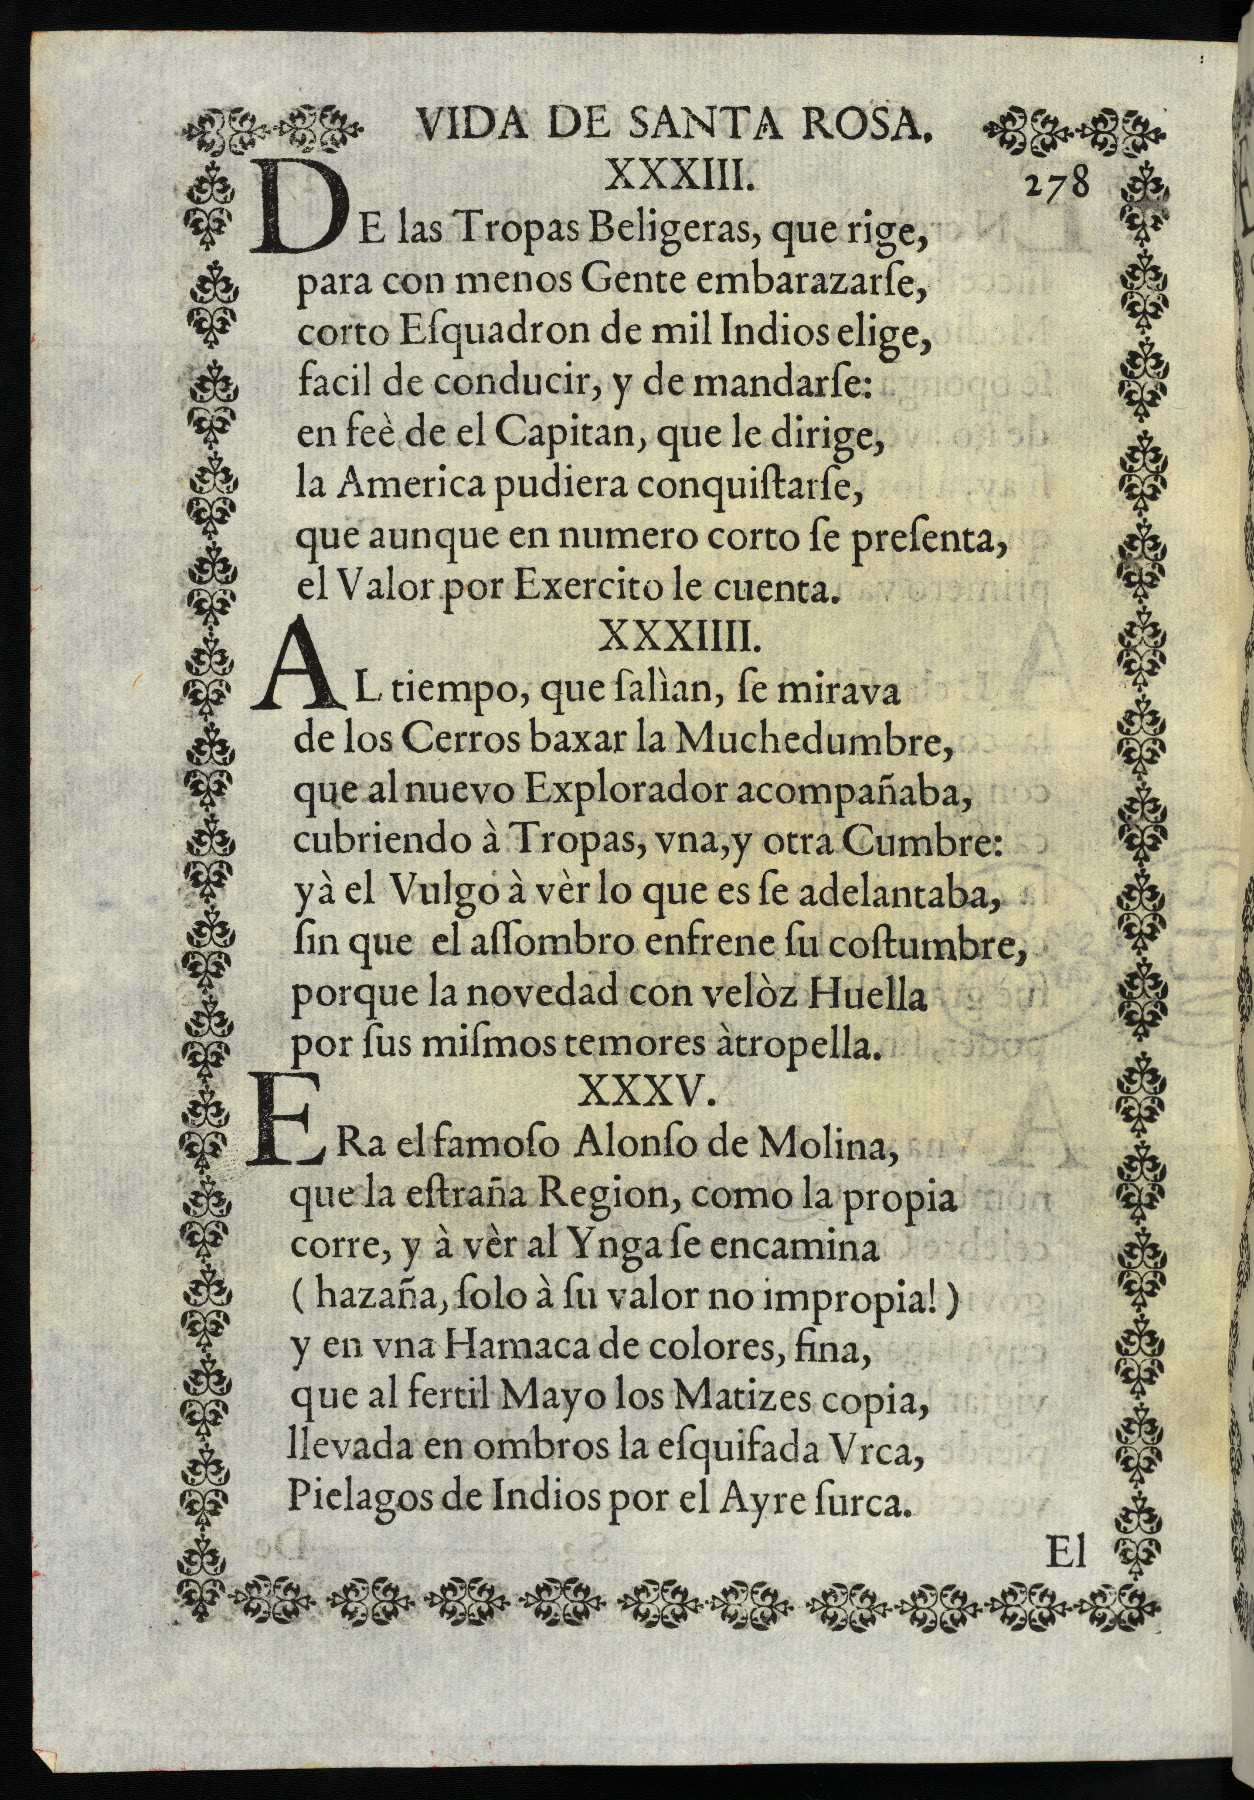 VIDA DE SANTA ROSA.
XXXIII.
278
DE las Tropas Beligeras, que rige,
para con menos Gente embarazarſe,
corto Eſquadron de mil Indios elige,
facil de conducir, y de mandarſe:
en feè de el Capitan, que le dirige,
la America pudiera conquiſtarſe,
que aunque en numero corto ſe preſenta,
el Valor por Exercito le cuenta.
XXXIIII.
AL tiempo, que ſalìan, ſe mirava
de los Cerros baxar la Muchedumbre,
que al nuevo Explorador acompañaba,
cubriendo à Tropas, vna, y otra Cumbre:
yà el Vulgo à vèr lo que es ſe adelantaba,
ſin que el aſſombro enfrene ſu coſtumbre,
porque la novedad con velòz Huella
por ſus miſmos temores àtropella.
XXXV.
ERa el famoſo Alonſo de Molina,
que la eſtraña Region, como la propia
corre, y à vèr al Ynga ſe encamina
( hazaña, ſolo à ſu valor no impropia! )
y en vna Hamaca de colores, fina,
que al fertil Mayo los Matizes copia,
llevada en ombros la eſquifada Vrca,
Pielagos de Indios por el Ayre ſurca.
El